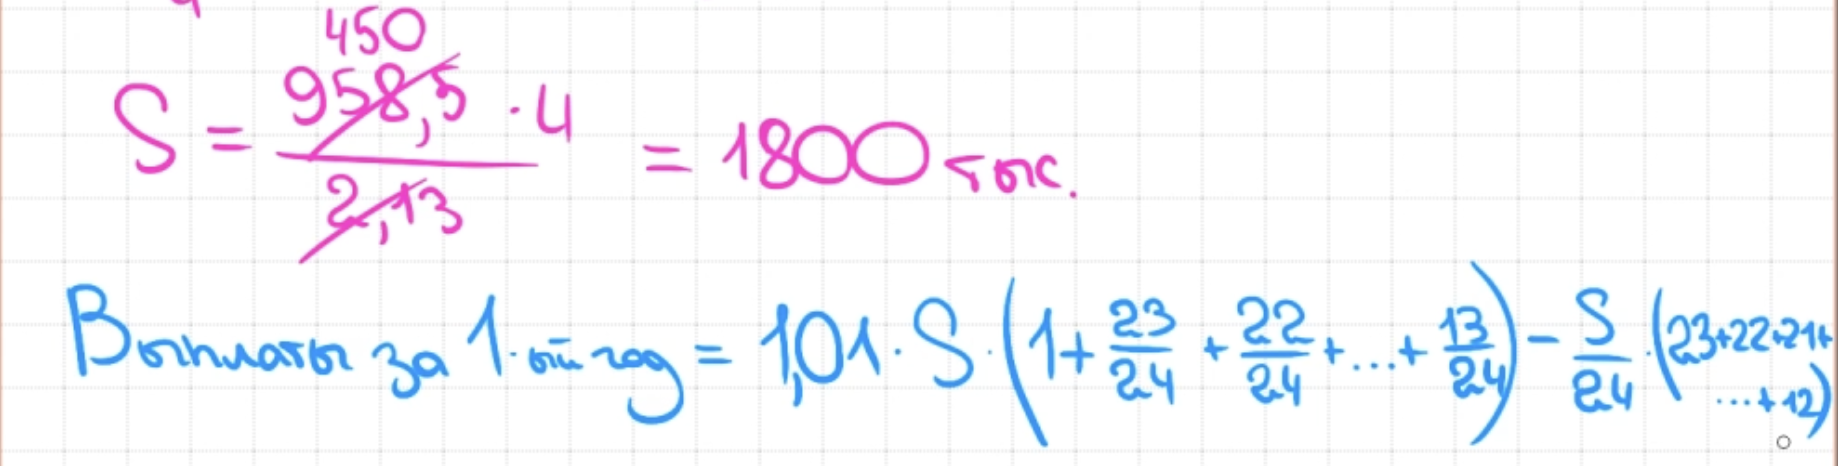 450
S = 958,5 · 4 / 2,13 = 1800 тыс.
Выплаты за 1-ый год = 1,01 · S · (1 + 23/24 + 22/24 + ... + 13/24) - S/24 · (23+22+21+
...+12)